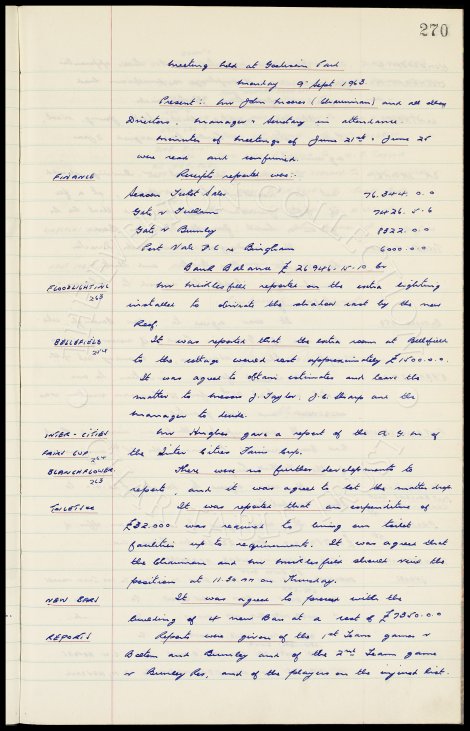 270
Meeting held at Goodison Park
Monday 9th Sept 1963
Present :- Mr John Moores (Chairman) and all other
Directors. Manager & Secretary in attendance.
Minutes of meetings of June 21st & June 25
were read and confirmed.
FINANCE Receipts reported were :-
Season Ticket Sales 76.344.0.0
Gate v Fulham 7426.5.6
Gate v Burnley 8322.0.0
Port Vale F.C. re Bingham 6000.0.0
Bank Balance £ 26946.15.10 Cr
FLOODLIGHTING Mr Micklesfield reported on the extra lighting
263 installed to eliminate the shadow cast by the new
Roof.
BELLEFIELD It was reported that the extra room at Bellefield
264 to the cottage would cost approximately £1500.0.0.
It was agreed to obtain estimates and leave the
matter to Messrs J. Taylor, J.C. Sharp and the
Manager to decide.
INTER-CITIES Mr Hughes gave a report of the A.G.M of
FAIRS CUP 264 the Inter Cities Fairs Cup.
BLANCHFLOWER There were no further developments to
263 report, and it was agreed to let the matter drop.
TOILETS It was reported that an expenditure of
£32.000 was required to bring our toilet
facilities up to requirements. It was agreed that
the Chairman and Mr Micklesfield should view the
position at 11.30 AM on Thursday.
NEW BARS It was agreed to proceed with the
building of 4 new Bars at a cost of £7350.0.0
REPORTS Reports were given of the 1st Team games v
Bolton and Burnley and of the 2nd Team game
v Burnley Res, and of the players on the injured list.